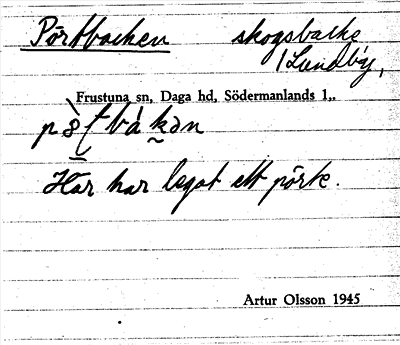 Pörtbacken skogsbacke
/Lundby,
Frustuna sn, Daga hd, Södermanlands l,.
Här har legat ett pörte.
Artur Olsson 1945